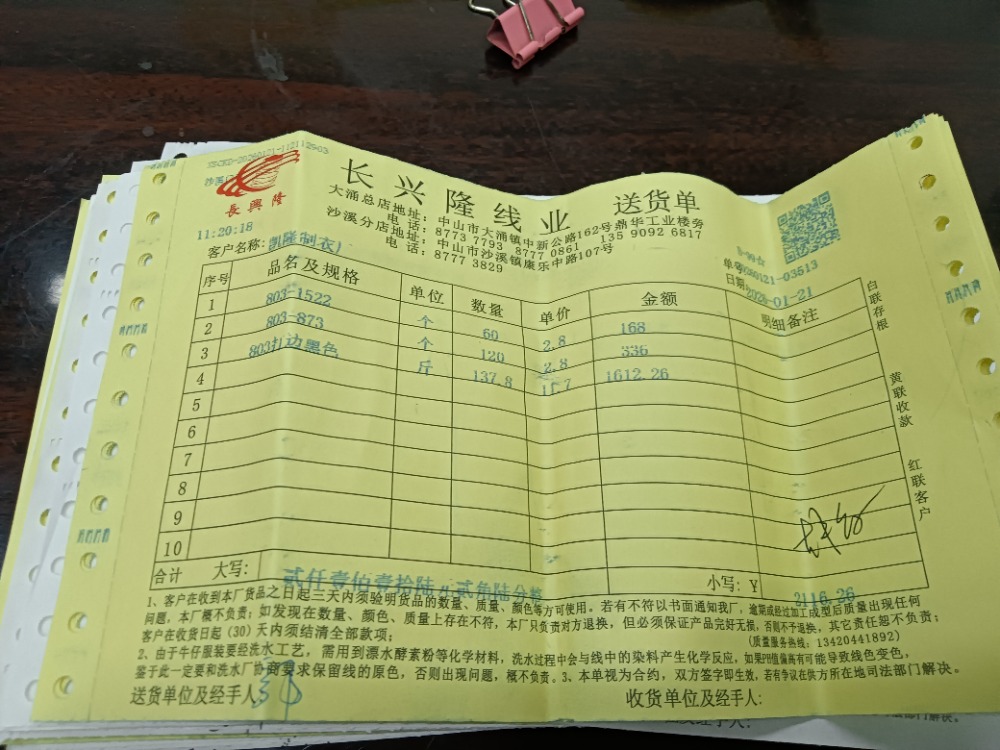 长兴隆线业 送货单
長興隆
大涌总店地址：中山市大涌镇中新公路162号鼎华工业楼旁
电话：8773 7793 8777 0861 135 9092 6817
沙溪分店地址：中山市沙溪镇康乐中路107号
电话：8777 3829
11:20:18
客户名称：凯隆制衣厂
日期 2026-01-21
序号 品名及规格 单位 数量 单价 金额 明细备注
1 803-1522 个 60 2.8 168
2 803-873 个 120 2.8 336
3 803扎边黑色 斤 137.8 11.7 1612.26
4
5
6
7
8
9
10
合计 大写：贰仟壹佰壹拾陆元贰角陆分整 小写：￥ 2116.26
白联存根
黄联收款
红联客户
1、客户在收到本厂货品之日起三天内须验明货品的数量、质量、颜色等方可使用。若有不符以书面通知我厂，逾期或经过加工成型后质量出现任何
问题，本厂概不负责；如发现在数量、颜色、质量上存在不符，本厂只负责对方退换，但必须保证产品完好无损，否则不予退换，其它责任恕不负责；
客户在收货日起（30）天内须结清全部款项；
（质量服务热线：13420441892）
2、由于牛仔服装要经洗水工艺，需用到漂水酵素粉等化学材料，洗水过程中会与线中的染料产生化学反应，如果PH值偏高有可能导致线色变色，
鉴于此一定要和洗水厂协商要求保留线的原色，否则出现问题，概不负责。3、本单视为合约，双方签字即生效，若有争议在供方所在地司法部门解决。
送货单位及经手人 收货单位及经手人：